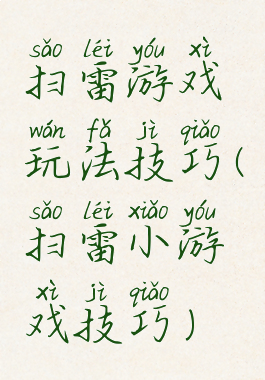 sǎo léi yóu xì
扫雷游戏
wán fǎ jì qiǎo
玩法技巧(
sǎo léi xiǎo yóu
扫雷小游
xì jì qiǎo
戏技巧)